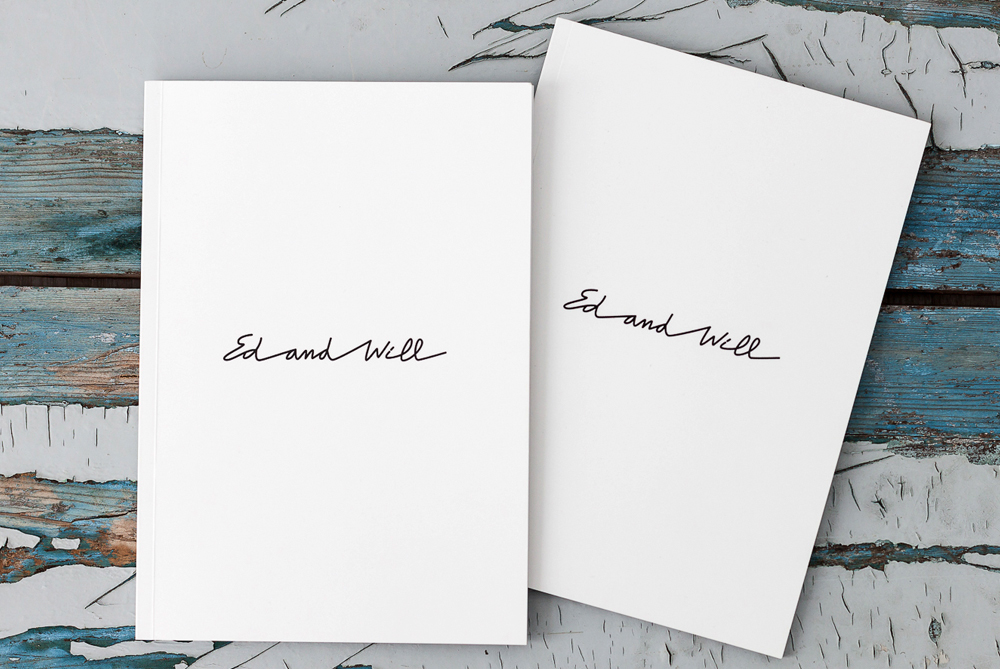 Ed and Will
Ed and Will